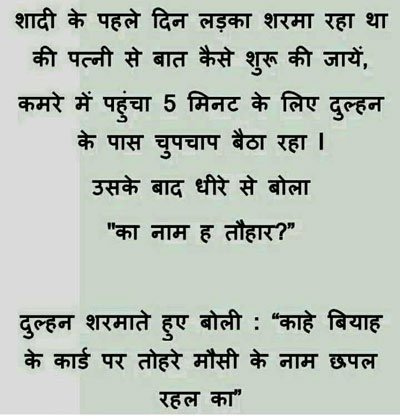 शादी के पहले दिन लड़का शरमा रहा था
की पत्नी से बात कैसे शुरू की जायें,
कमरे में पहुंचा 5 मिनट के लिए दुल्हन
के पास चुपचाप बैठा रहा ।
उसके बाद धीरे से बोला
"का नाम ह तौहार?”
दुल्हन शरमाते हुए बोली : “काहे बियाह
के कार्ड पर तोहरे मौसी के नाम छपल
रहल का”